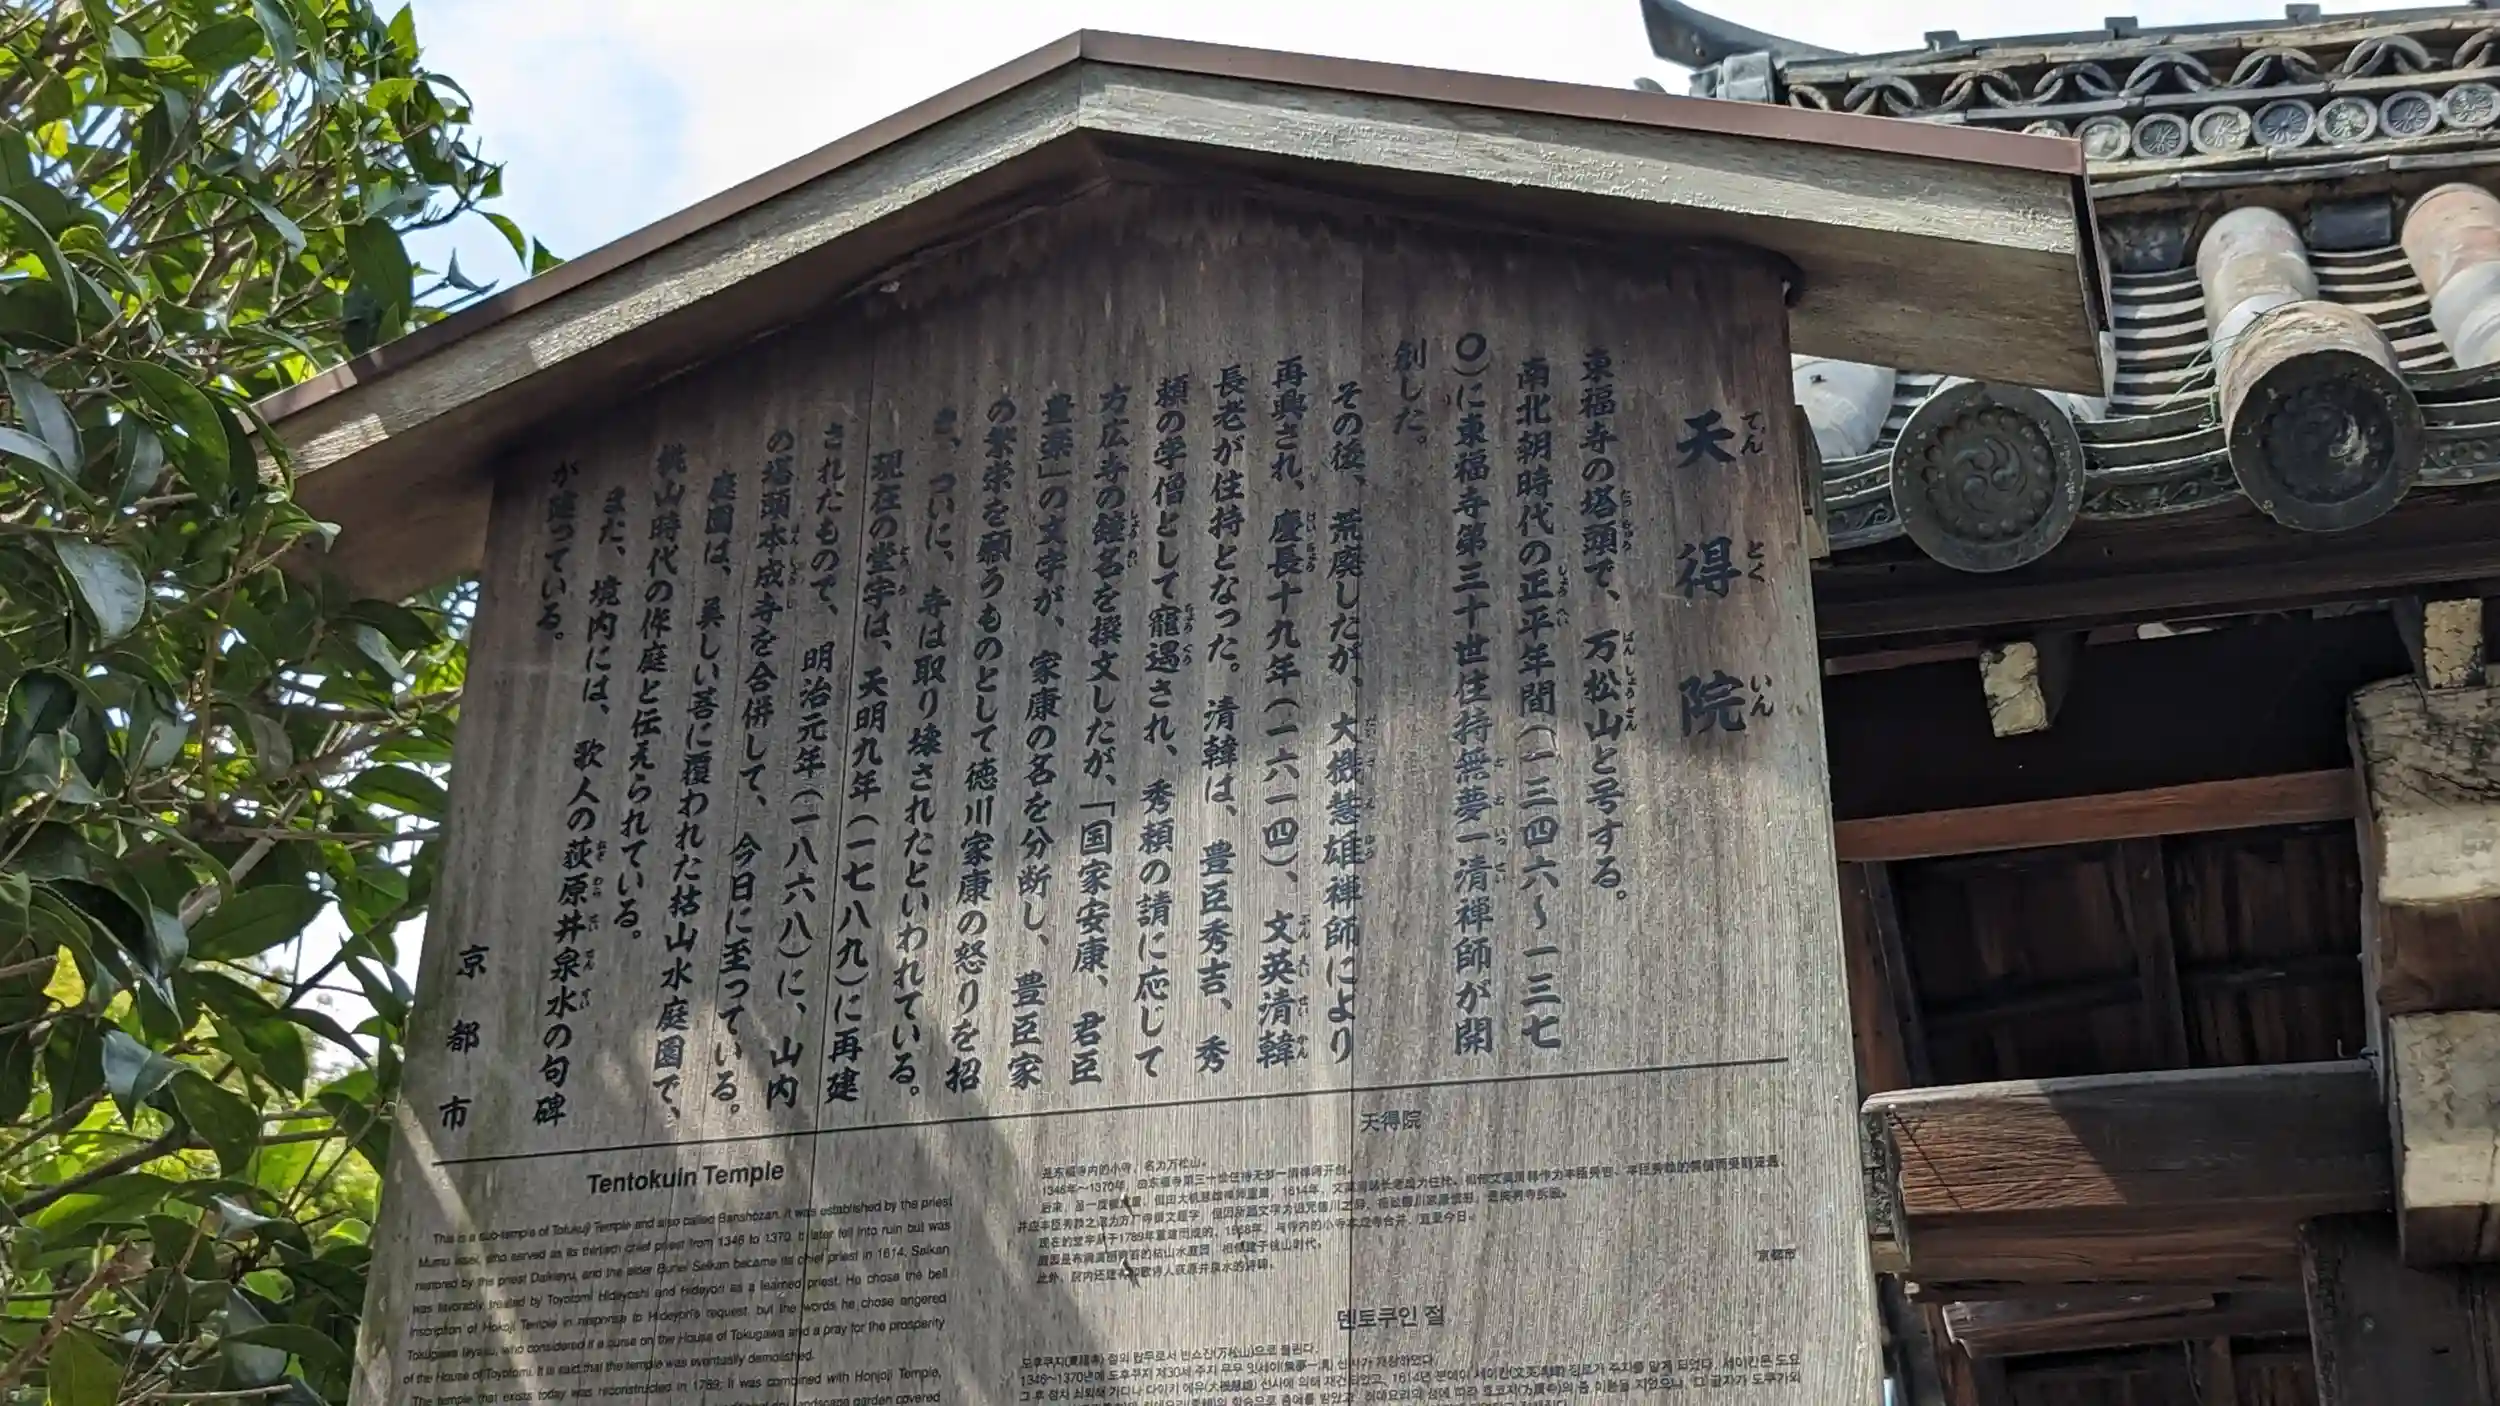 天得院
てんとくいん
東福寺の塔頭で、万松山と号する。
南北朝時代の正平年間(一三四六~一三七
〇)に東福寺第三十世住持無夢一清禅師が開
創した。
その後、荒廃したが、大機慧雄禅師により
再興され、慶長十九年(一六一四)、文英清韓
長老が住持となった。清韓は、豊臣秀吉、秀
頼の学僧として寵遇され、秀頼の請に応じて
方広寺の鐘名を撰文したが、「国家安康、君臣
豊楽」の文字が、家康の名を分断し、豊臣家
の繁栄を願うものとして徳川家康の怒りを招
き、ついに、寺は取り壊されたといわれている。
現在の堂宇は、天明九年(一七八九)に再建
されたもので、明治元年(一八六八)に、山内
の塔頭本成寺を合併して、今日に至っている。
庭園は、美しい苔に覆われた枯山水庭園で、
桃山時代の作庭と伝えられている。
また、境内には、歌人の荻原井泉水の句碑
が建っている。
京都市
Tentokuin Temple
This is a sub-temple of Tofukuji Temple and also called Banshozan. It was established by the priest
Mumu Issei, who served as its thirtieth chief priest from 1346 to 1370. It later fell into ruin but was
restored by the priest Daikieyu, and the elder Bunei Seikan became its chief priest in 1614. Seikan
was favorably treated by Toyotomi Hideyoshi and Hideyori as a learned priest. He chose the bell
inscription of Hokoji Temple in response to Hideyori's request, but the words he chose angered
Tokugawa Ieyasu, who considered it a curse on the House of Tokugawa and a pray for the prosperity
of the House of Toyotomi. It is said that the temple was eventually demolished.
The temple that exists today was reconstructed in 1789; it was combined with Honjoji Temple,
landscape garden covered
天得院
是东福寺内的小寺，名为万松山。
1346年～1370年，由东福寺第三十世住持无梦一清禅师开创。
现在的堂宇是于1789年重建而成的，1868年，与寺内的小寺本成寺合并，直至今日。
庭园是布满美丽青苔的枯山水庭园，相传建于桃山时代。
此外，院内还建有和歌诗人荻原井泉水的诗碑。
京都市
덴토쿠인 절
도후쿠지(東福寺) 절의 탑두로서 반쇼잔(万松山)으로 불린다.